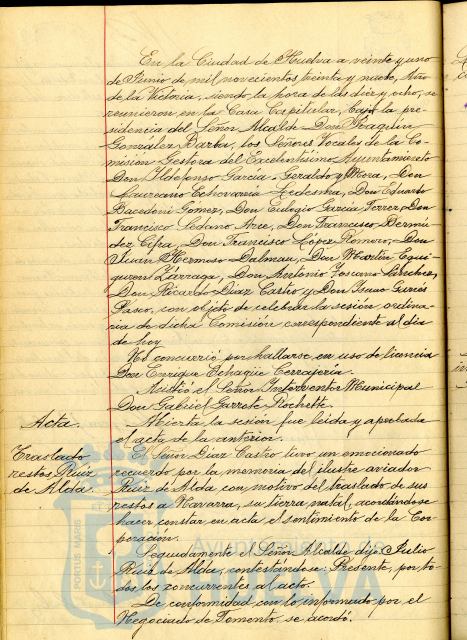 En la Ciudad de Huelva a veinte y uno
de Junio de mil novecientos treinta y nueve, Año
de la Victoria, siendo la hora de las diez y ocho, se
reunieron en la Casa Capitular, bajo la pre-
sidencia del Señor Alcalde Don Joaquin
González Barba, los Señores Vocales de la Co-
misión Gestora del Excelentísimo Ayuntamiento
Don Ildefonso Garcia-Geraldo y Mora, Don
Laureano Echevarría Ledesma, Don Eduardo
Bacedoni Gomez, Don Eulogio Garcia Ferrer, Don
Francisco Sedano Arce, Don Francisco Bermú-
dez Cefra, Don Francisco López Romero, Don
Juan Hermoso Dalmau, Don Martín Egui-
guren Zárraga, Don Antonio Toscano Sánchez,
Don Ricardo Diaz Castro y Don Isaac Garcés
Pasco, con objeto de celebrar la sesión ordina-
ria de dicha Comisión correspondiente al dia
de hoy
No concurrió por hallarse en uso de licencia
Don Enrique Echagüe Cerrajería.
Asistió el Señor Interventor Municipal
Don Gabriel Garrote Rochette.
Acta.
Abierta la sesión fue leida y aprobada
el acta de la anterior.
Traslado
restos Ruiz
de Alda.
El Señor Diaz Castro tuvo un emocionado
recuerdo por la memoria del ilustre aviador
Ruiz de Alda con motivo del traslado de sus
restos a Navarra, su tierra natal, acordándose
hacer constar en acta el sentimiento de la Cor-
poración.
Seguidamente el Señor Alcalde dijo: Julio
Ruiz de Alda, contestándose: Presente, por to-
dos los concurrentes al acto.
De conformidad con lo informado por el
Negociado de Fomento, se acordó.
PORTUS MARIS
Ayuntamiento de
HUELVA